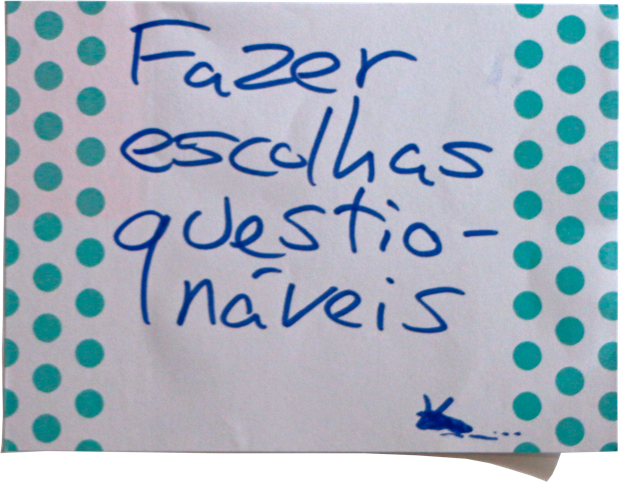 Fazer
escolhas
questio-
náveis